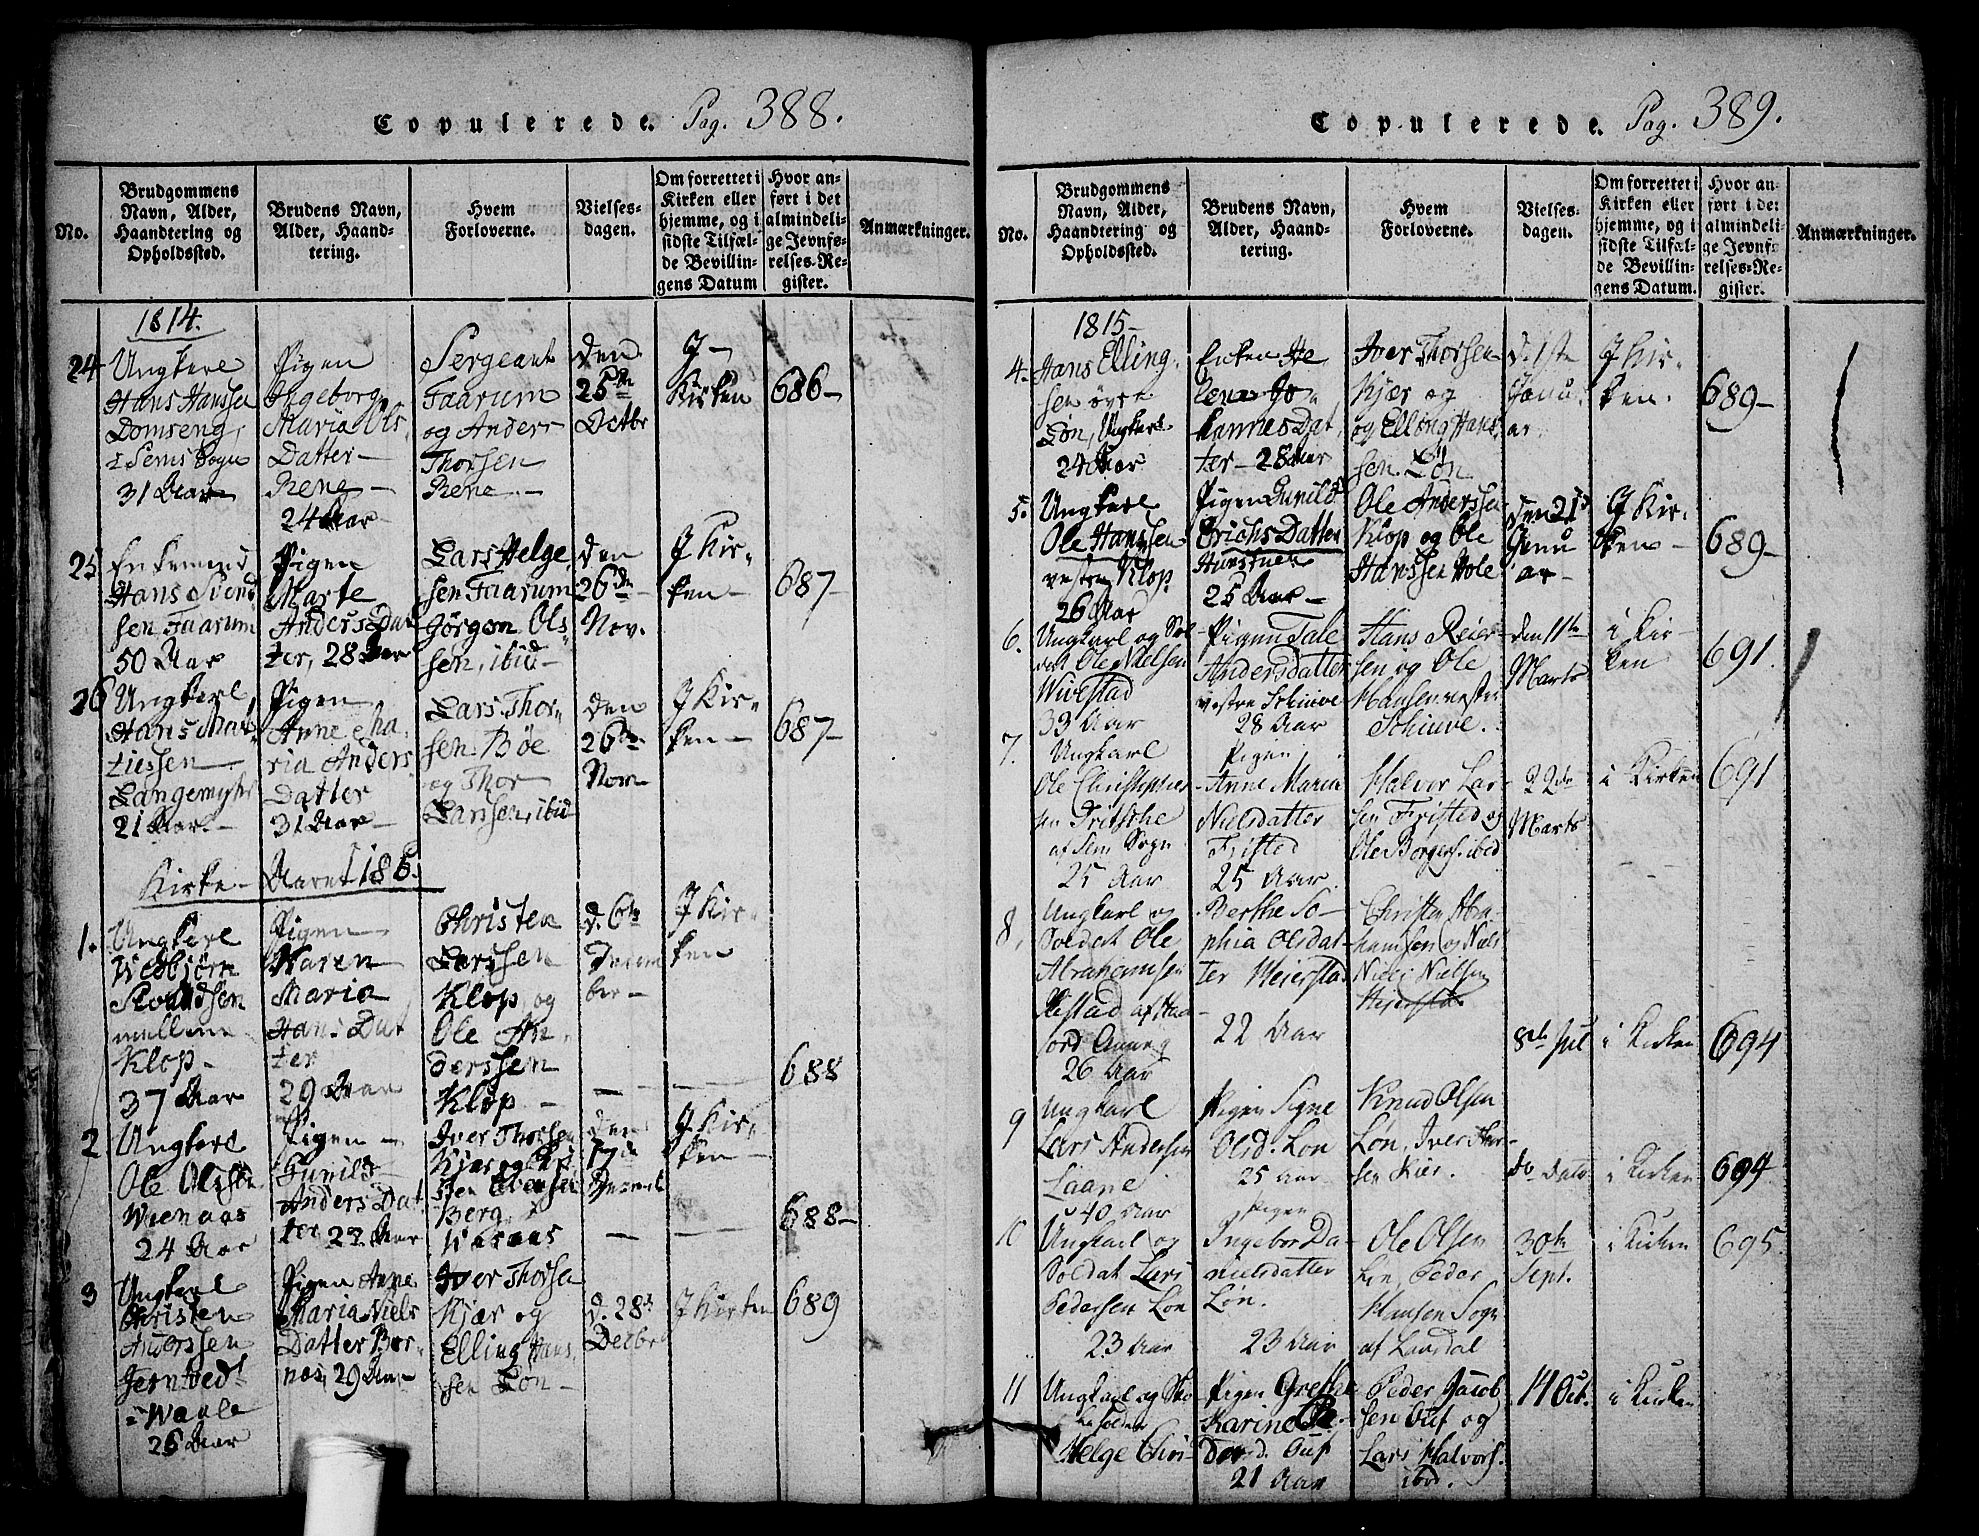 Copulerede. Pag. 388.
No.
Brudgommens Navn, Alder, Haandtering og Opholdssted.
Brudens Navn, Alder, Haandtering.
Hvem Forloverne.
Vielsesdagen.
Om forrettet i Kirken eller hjemme, og i sidste Tilfælde Bevillingens Datum
Hvor anført i det almindelige Jevnførelses-Register.
Anmærkninger.
1814.
24
Ungkarl
Hans Hanssen
Domseng,
i Sems Sogn
31 Aar
Pigen
Ingeborg
Maria Ols
Datter
Rene
24 Aar
Sergeant
Faarum
og Anders
Thorsen
Rene
den
25de
Octbr
J
Kirken
686
25
Enkemand
Hans Svend
sen Faarum
50 Aar
Pigen
Marte
Anders Dat
ter, 28 Aar
Lars Helge
sen Faarum
Jørgen Ols
sen, ibid
den
26de
Nov.
J Kir
ken
687
26
Ungkarl
Hans Mar
tiussen
Langemyhr
21 Aar
Pigen
Anne Cha
ria Anders
Datter
31 Aar
Lars Thor
sen Bøe
og Thor
Larssen, ibid
den
26de
Nov
J Kir
ken
687
Kirke-Aaret 1815.
1.
Ungkarl
Webjørn
mellem
Klop
37 Aar
Pigen
Karen
Maria
Hans Dat
ter
29 Aar
Christen
Larssen
Klop, og
Ole An
derssen
Klop
d. 6te
Decem
ber
J Kir
ken
688
2
Ungkarl
Ole Olssen
Wienaas
24 Aar
Pigen
Gunild
Anders Dat
ter 22 Aar
Iver Thorsen
Kjær og
Berg
den
17de
J Kir
ken
688
3
Ungkarl
Christen
Anderssen
Jerntvedt
i Waale
26 Aar
Pigen Anne
Maria Niels
Datter Bor
nes, 29 Aar
Iver Thorsen
Kjær og
Elling Hans
sen Løn
d. 28de
Decbr
J Kirken
689
Copulerede. Pag. 389.
No.
Brudgommens Navn, Alder, Haandtering og Opholdssted.
Brudens Navn, Alder, Haandtering.
Hvem Forloverne.
Vielsesdagen.
Om forrettet i Kirken eller hjemme, og i sidste Tilfælde Bevillingens Datum.
Hvor anført i det almindelige Jevnførelses-Register.
Anmærkninger.
1815
4.
Hans Elling
sen øvre
Løn, Ungkarl
24 Aar
Enken He
lene Jo
hannes Dat
ter 28 Aar
Iver Thorsen
Kjær og
og Elling Hans
sen Løn
d. 1ste
Janu
ar
J Kir
ken
689
5.
Ungkarl
Ole Hanssen
vestre Klop
26 Aar
Pigen Gunild
Erichs Datter
25 Aar
Ole Anderssen
Klop og Ole
Hanssen Hole
den 21d
Janu
ar
J Kir
ken
689
6.
Ungkarl og Sol
dat Ole Nielsen
Wivestad
33 Aar
Pigen Dale
Andersdatter
vestre Schiuve
28 Aar
Hans Reier
sen og Ole
Hansen vestre
Schiuve.
den 11te
Marts
i Kir
ken
691.
7.
Ungkarl
Ole Christopher
sen
af Sem Sogn
25 Aar
Pigen
Anne Maria
Nielsdatter
Fristed
25 Aar
Halvor Lar
sen Fristed og
Ole Borgers. ibid
22de
Marts
i Kirken
691
8,
Ungkarl og
Soldat Ole
Abrahamsen
26 Aar
Berthe So
phia Olsdat
ter Meierstad
22 Aar
Christen Abra
hamsen og Niels
Niels Nielsen
8de Jul
i Kirken
694
9
Ungkarl
Lars Andersen
Laane
40 Aar
Pigen Signe
Olsd. Løn
25 Aar
Knud Olsen
Løn, Iver Thor
sen Kiær.
do Dato
i Kirken
694
10
Ungkarl og
Soldat Lars
Pedersen Løn
23 Aar
Pigen
Ingebor Da
nielsdatter
Løn.
23 Aar
Ole Olsen
Løn, Peder
Hansen Sogn
af Laurdal
30te
Sept.
i Kirken
695
11
Ungkarl og
Helge Chri
Pigen Grethe
Karine Pe
dersd. Auf
21 Aar
Peder Jacob
sen Auf og
Lars Halvors.
ibid.
14 Oct.
i Kirken